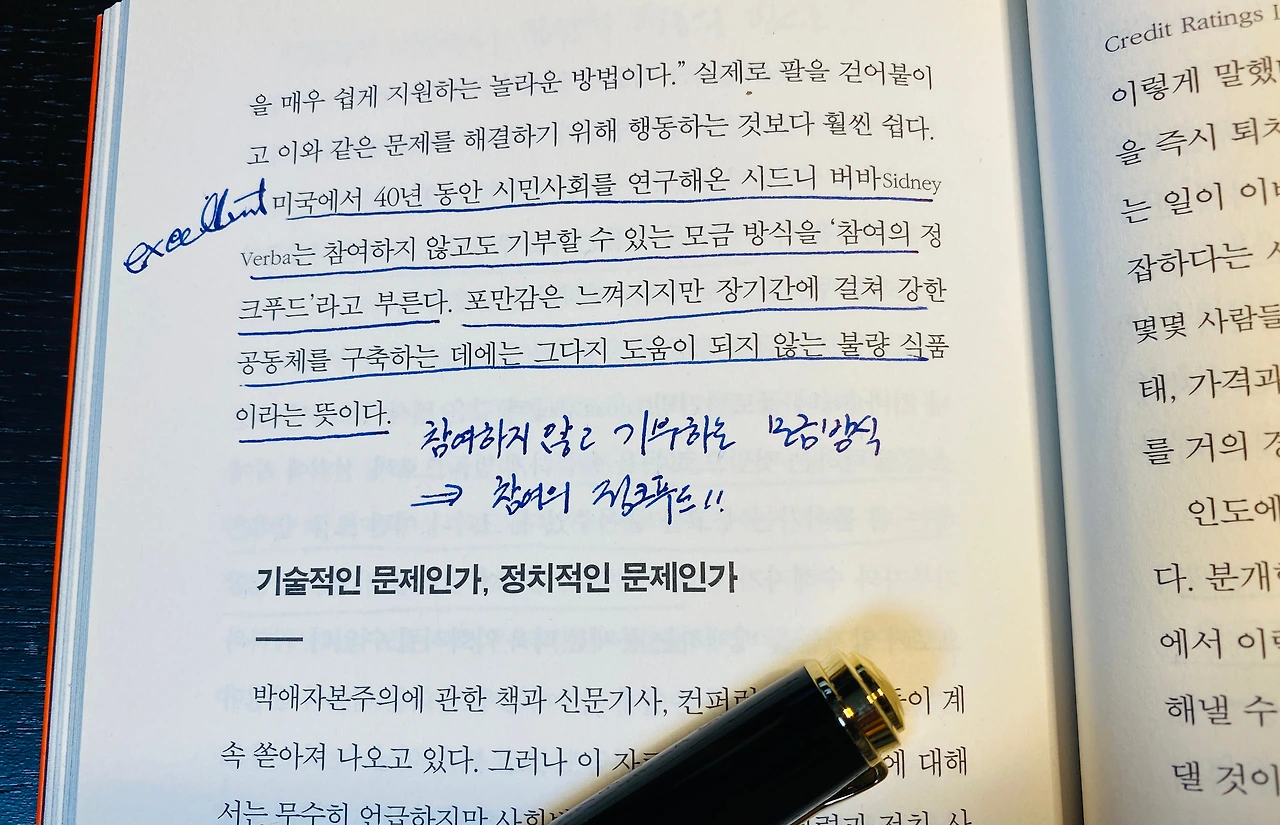 을 매우 쉽게 지원하는 놀라운 방법이다.” 실제로 팔을 걷어붙이
고 이와 같은 문제를 해결하기 위해 행동하는 것보다 훨씬 쉽다.
excellent
미국에서 40년 동안 시민사회를 연구해온 시드니 버바Sidney
Verba는 참여하지 않고도 기부할 수 있는 모금 방식을 ‘참여의 정
크푸드’라고 부른다. 포만감은 느껴지지만 장기간에 걸쳐 강한
공동체를 구축하는 데에는 그다지 도움이 되지 않는 불량 식품
이라는 뜻이다.
참여하지 않고 기부하는 모금방식
⇒ 참여의 정크푸드!!
기술적인 문제인가, 정치적인 문제인가
박애자본주의에 관한 책과 신문기사, 컨퍼런 이 계
속 쏟아져 나오고 있다. 그러나 이 에 대해
서는 무수히 언급하지만
Credit Ratings
이렇게 말했
을 즉시 퇴
는 일이 이
잡하다는
몇몇 사람들
태, 가격과
를 거의
인도에
다. 분개
에서 이
해낼 수
댈 것이